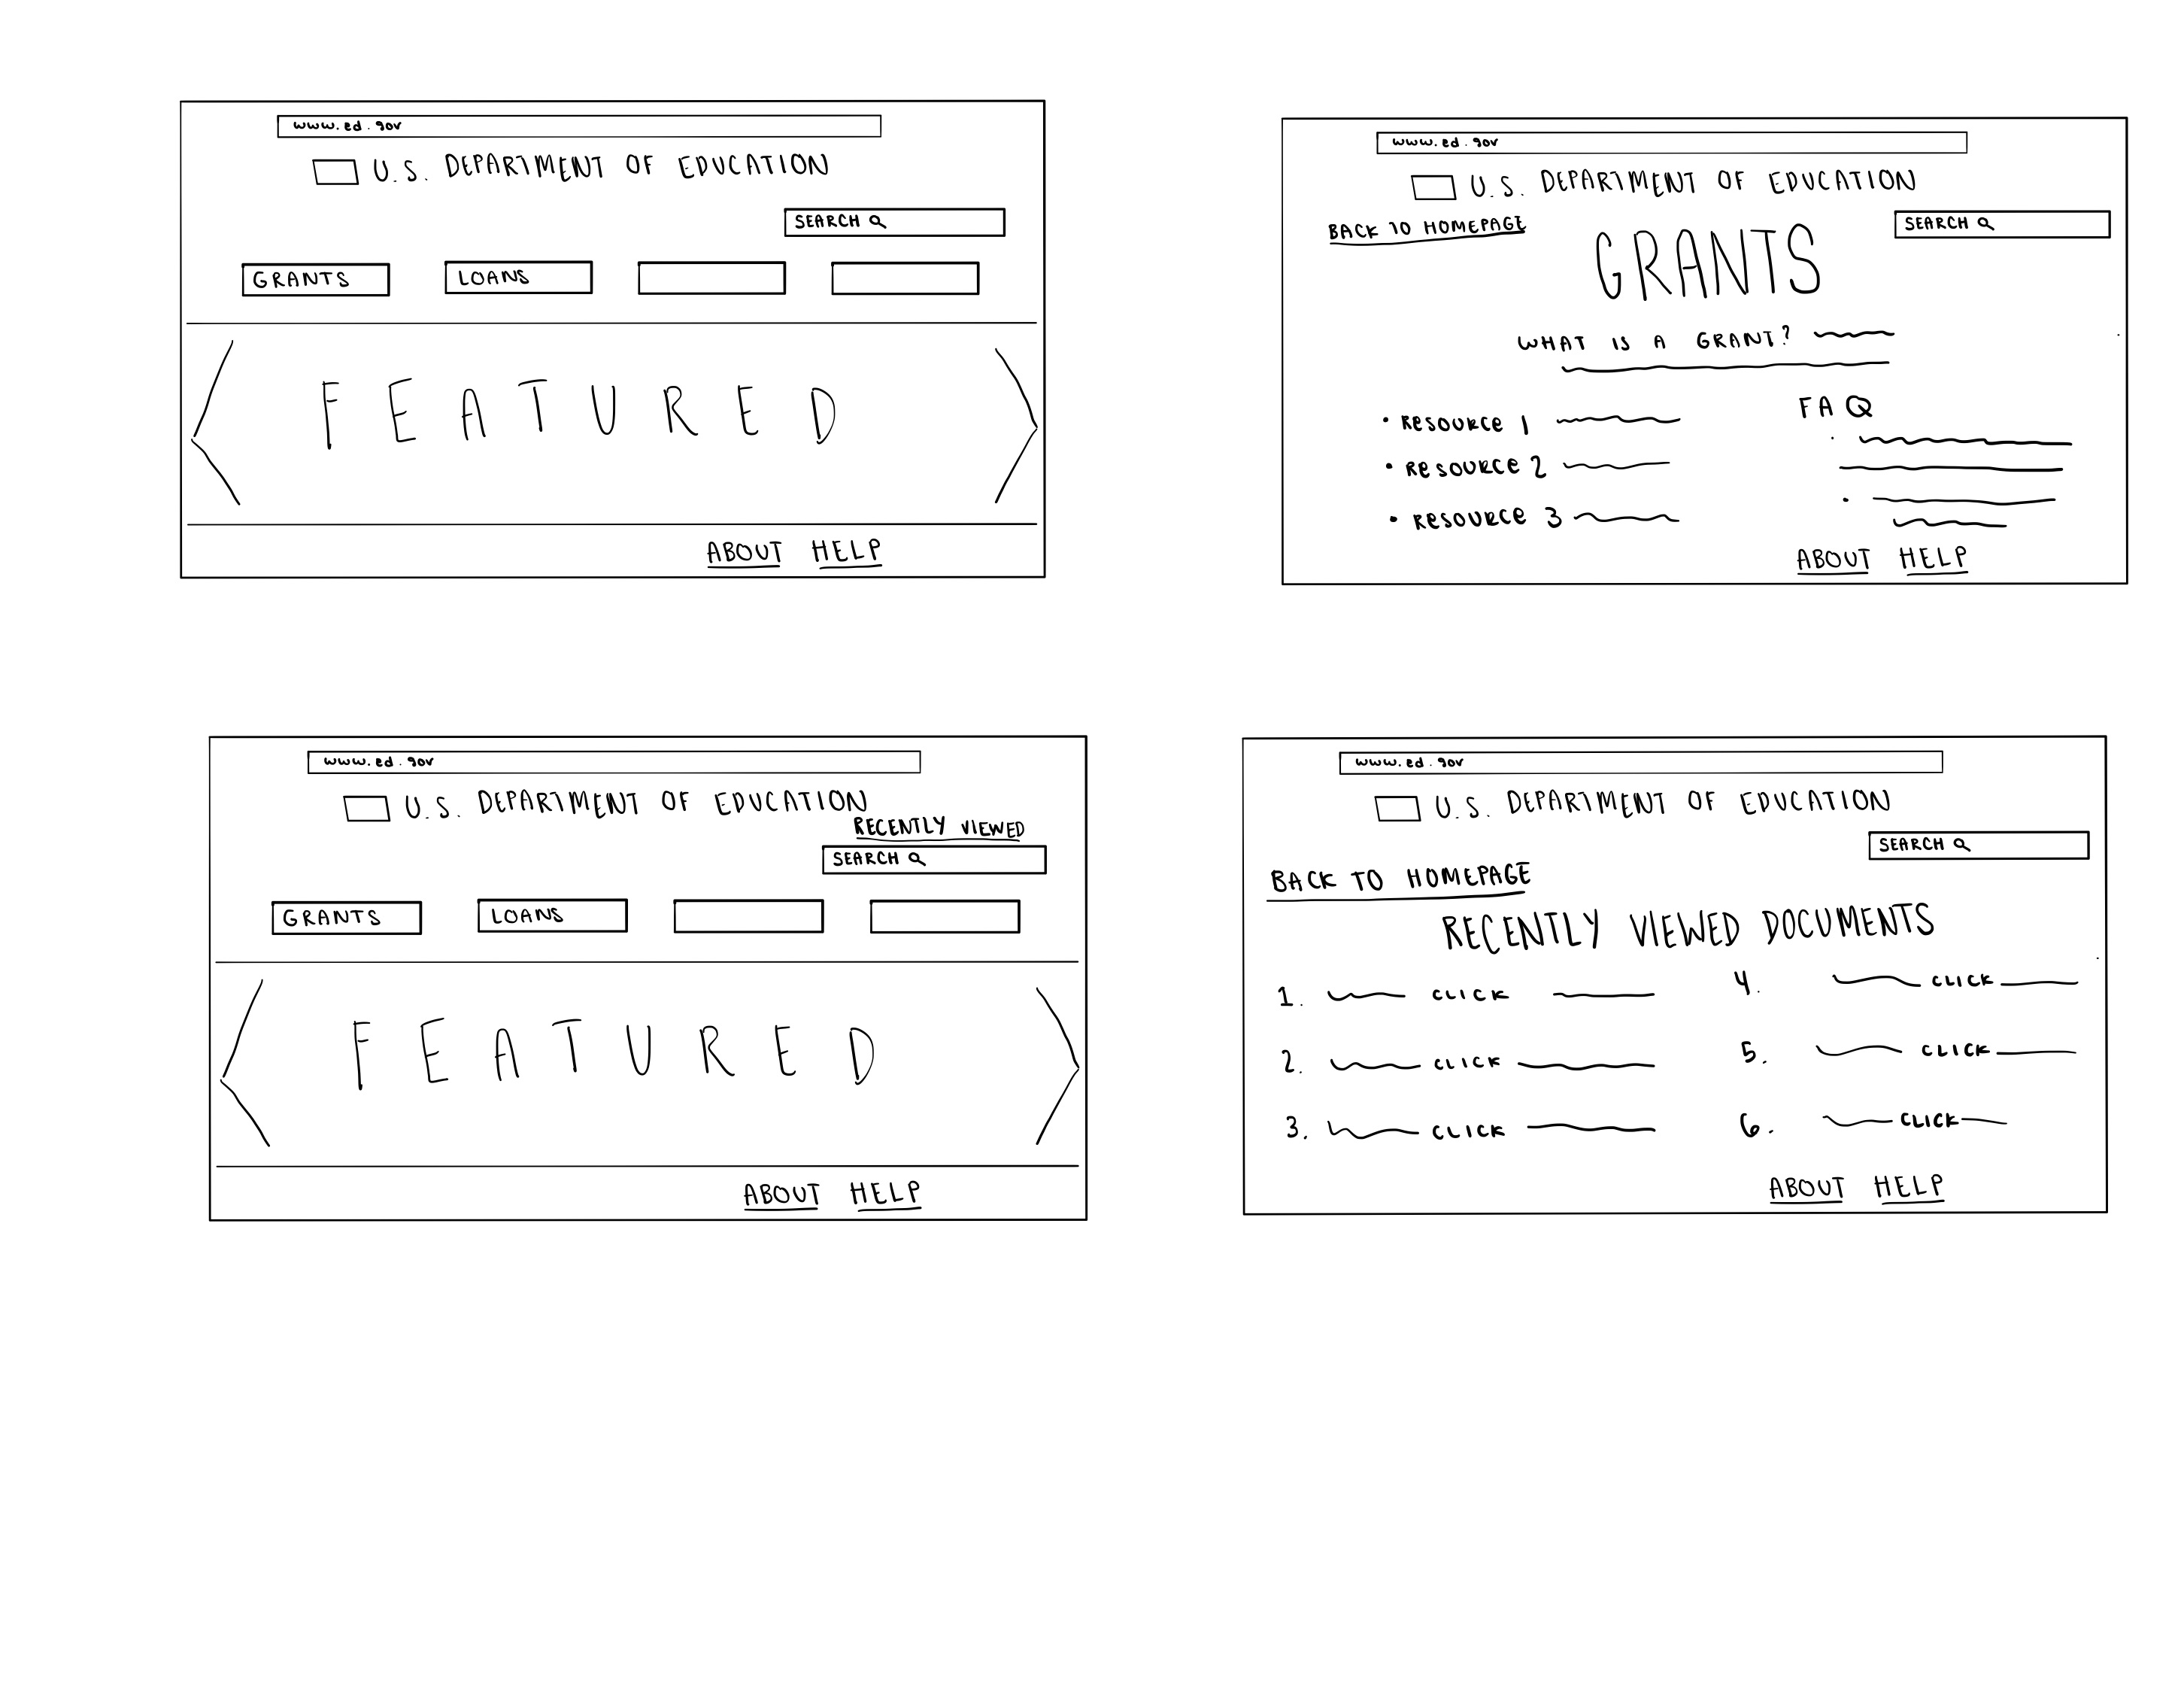 www.ed.gov
U.S. DEPARTMENT OF EDUCATION
SEARCH
GRANTS LOANS
FEATURED
ABOUT HELP
www.ed.gov
U.S. DEPARTMENT OF EDUCATION
BACK TO HOMEPAGE SEARCH
GRANTS
WHAT IS A GRANT?
• RESOURCE 1
• RESOURCE 2
• RESOURCE 3
FAQ
ABOUT HELP
www.ed.gov
U.S. DEPARTMENT OF EDUCATION
RECENTLY VIEWED
SEARCH
GRANTS LOANS
FEATURED
ABOUT HELP
www.ed.gov
U.S. DEPARTMENT OF EDUCATION
SEARCH
BACK TO HOMEPAGE
RECENTLY VIEWED DOCUMENTS
1. CLICK
2. CLICK
3. CLICK
4. CLICK
5. CLICK
6. CLICK
ABOUT HELP